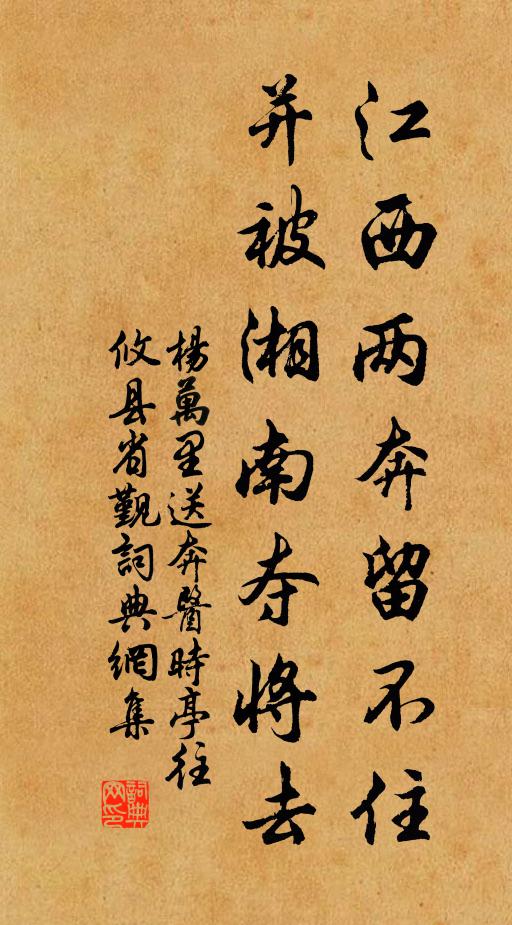 江西两奔留不住
并被湘南夺将去
楊萬里送奔醫時亭往
攸县省觐詞典網集
詞典网印